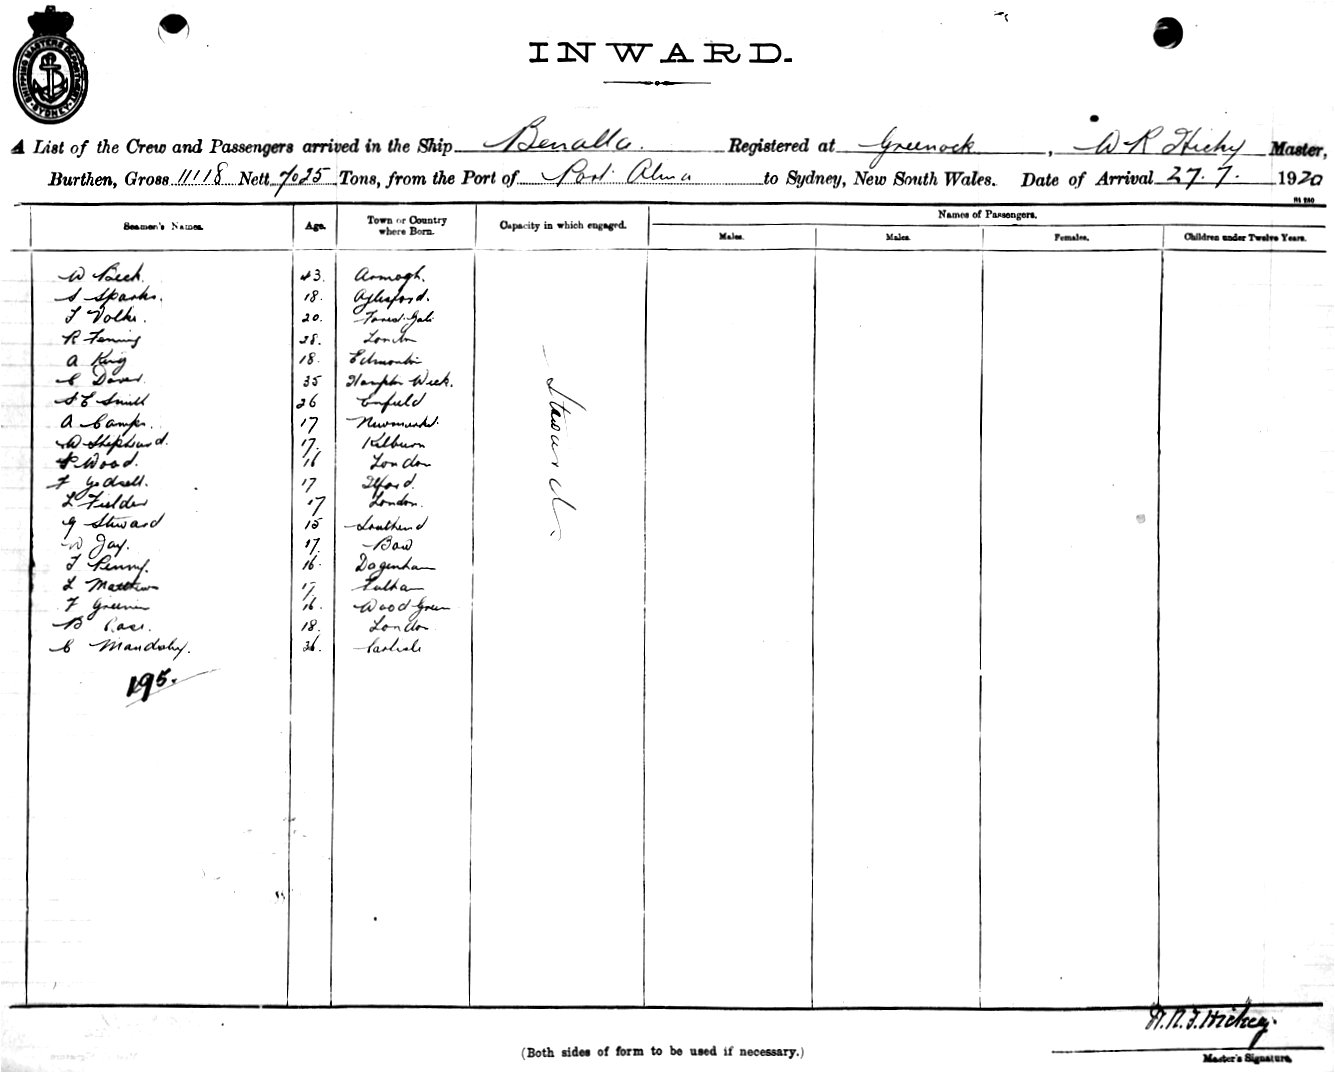 SHIPPING MASTERS DEPARTMENT SYDNEY
INWARD.
A List of the Crew and Passengers arrived in the Ship Benalla. Registered at Greenock, W R Hickey Master,
Burthen, Gross 11118 Nett 7025 Tons, from the Port of Port Alma to Sydney, New South Wales. Date of Arrival 27.7.1920
Seamen's Names. Age. Town or Country where Born. Capacity in which engaged. Names of Passengers.
Males. Males. Females. Children under Twelve Years.
W Beck. 43. Armagh.
S Sparks. 18. Aylesford.
T Volke. 20.
R Fenning 28. London
A King 18. Edmonton
C 35 Hampton Wick.
S E Smith 26 Enfield
A Camps. 17 Newmarket.
W Shepheard. 17. Kilburn
P Wood. 16 London
F Godsell. 17 Ilford.
L Fielder 17 London.
G Steward 15 Southend
W Jay. 17. Bow
T Penny. 16. Dagenham
L Matthews 17. Fulham
F Greener 16. Wood Green
B Case. 18. London
C 36. Carlisle
Steward.
195.
W.R.F. Hickey.
(Both sides of form to be used if necessary.)
Master's Signature.